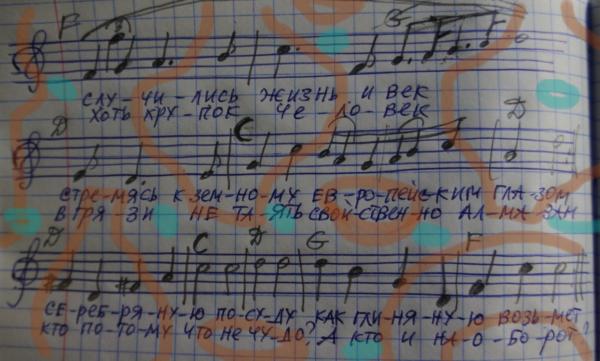 F G
СЛУ-ЧИ-ЛИСЬ ЖИЗНЬ И ВЕК
ХОТЬ ХРУ-ПОК ЧЕ-ЛО-ВЕК
D C D
СТРЕ-МЯСЬ К ЗЕМ-НО-МУ ЕВ-РО-ПЕЙСКИМ ГЛА-ЗОМ
В ГРЯ-ЗИ НЕ ТЛ-ЯТЬ СВОЙ-СТВЕН-НО АЛ-МА-ЗАМ
D C D G F
СЕ-РЕБ-РЯ-НУ-Ю ПО-СУ-ДУ КАК ГЛИ-НЯ-НУ-Ю ВОЗЬ-МЕТ
КТО ПО-ТО-МУ ЧТО НЕ ЧУ-ДО? А КТО И НА-О-БО-РОТ!